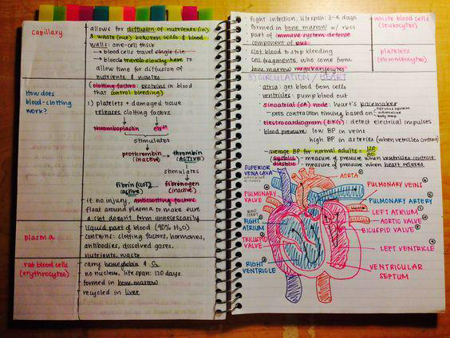 capillary
allows for diffusion of nutrients (in)
& waste (out) between cells & blood
walls: one-cell thick
→ blood cells travel single file
→ blood travels slowly here to
allow time for diffusion of
nutrients & waste
How does
blood-clotting
work?
clotting factors: proteins in blood
that control bleeding
1) platelets + damaged tissue
releases clotting factors
thromboplastin
stimulates
prothrombin → thrombin
(inactive) (ACTIVE)
stimulates
fibrin (clot) fibrinogen
(active) (inactive)
if no injury, anticlotting factors
float around plasma to make sure
a clot doesn't form unnecessarily
plasma
liquid part of blood (90% H2O)
contains: clotting factors, hormones,
antibodies, dissolved gases,
nutrients, waste
red blood cells
(erythrocytes)
carry hemoglobin & O2
no nucleus, life span: 120 days
formed in bone marrow
recycled in liver
fight infection, lifespan: 3-4 days
formed in bone marrow
part of immune defense
component of pus
white blood cells
(leukocytes)
clot blood to stop bleeding
cell fragments who come from
bone marrow megakaryocytes
platelets
(thrombocytes)
CIRCULATION / HEART
atria: get blood from cells
ventricles: pump blood out
sinoatrial (SA) node: heart's pacemaker
sets contraction timing, based on
electrocardiogram (EKG): detect electrical impulses
blood pressure: low BP in veins
high BP in arteries (when ventricles contract)
average BP for normal adults: 120
80
systolic - measure of pressure when ventricles contract
diastolic - measure of pressure when heart relaxes
SUPERIOR
VENA CAVA
AORTA
PULMONARY VEINS
PULMONARY
VALVE
PULMONARY ARTERY
LEFT ATRIUM
RIGHT
ATRIUM
AORTIC VALVE
BICUSPID VALVE
TRICUSPID
VALVE
LEFT VENTRICLE
RIGHT
VENTRICLE
VENTRICULAR
SEPTUM